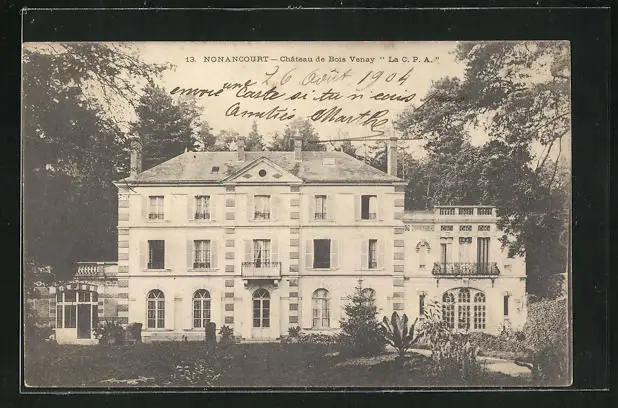 13. NONANCOURT — Château de Bois Venay "La C. P. A."
26 Août 1904
envoie une Carte si ta n'en
Amitiés Marthe